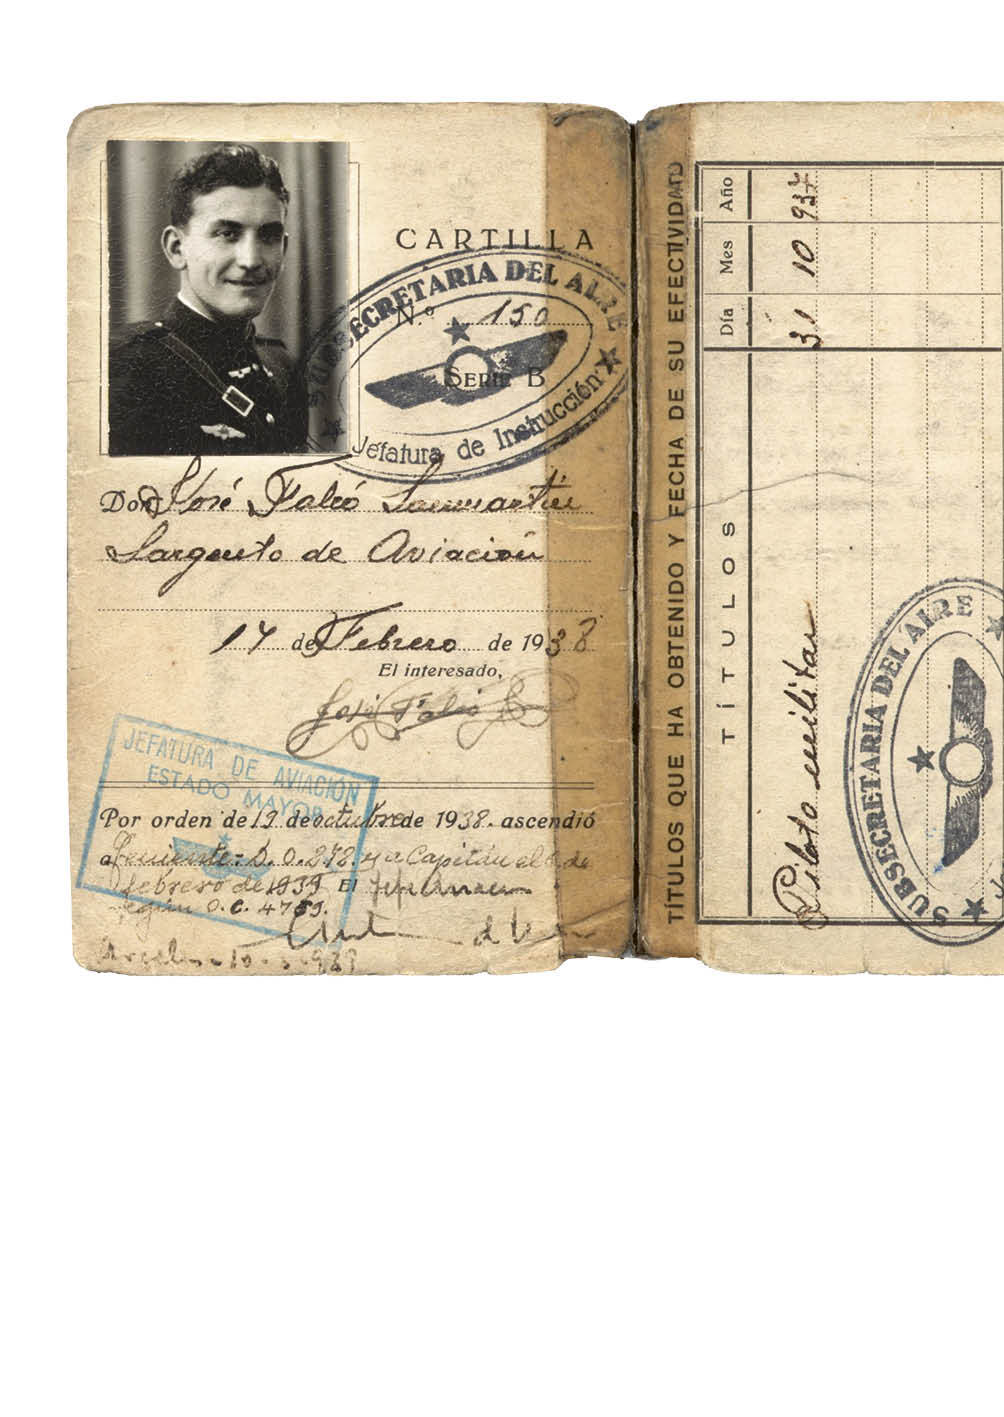 CARTILLA
N.º 150
SERIE B
SUBSECRETARIA DEL AIRE
Jefatura de Instrucción
Don José Falcó Sanmartín
Sargento de Aviación
17 de Febrero de 1938
El interesado,
José Falcó S
JEFATURA DE AVIACIÓN
ESTADO MAYOR
Por orden de 19 de octubre de 1938. ascendió
a Teniente = D. O. 272. y a Capitán el de
febrero de 1939 El
según O. C. 4759.
10-3-939
TÍTULOS QUE HA OBTENIDO Y FECHA DE SU EFECTIVIDAD
TÍTULOS
Día Mes Año
Piloto militar 31 10 937
SUBSECRETARIA DEL AIRE